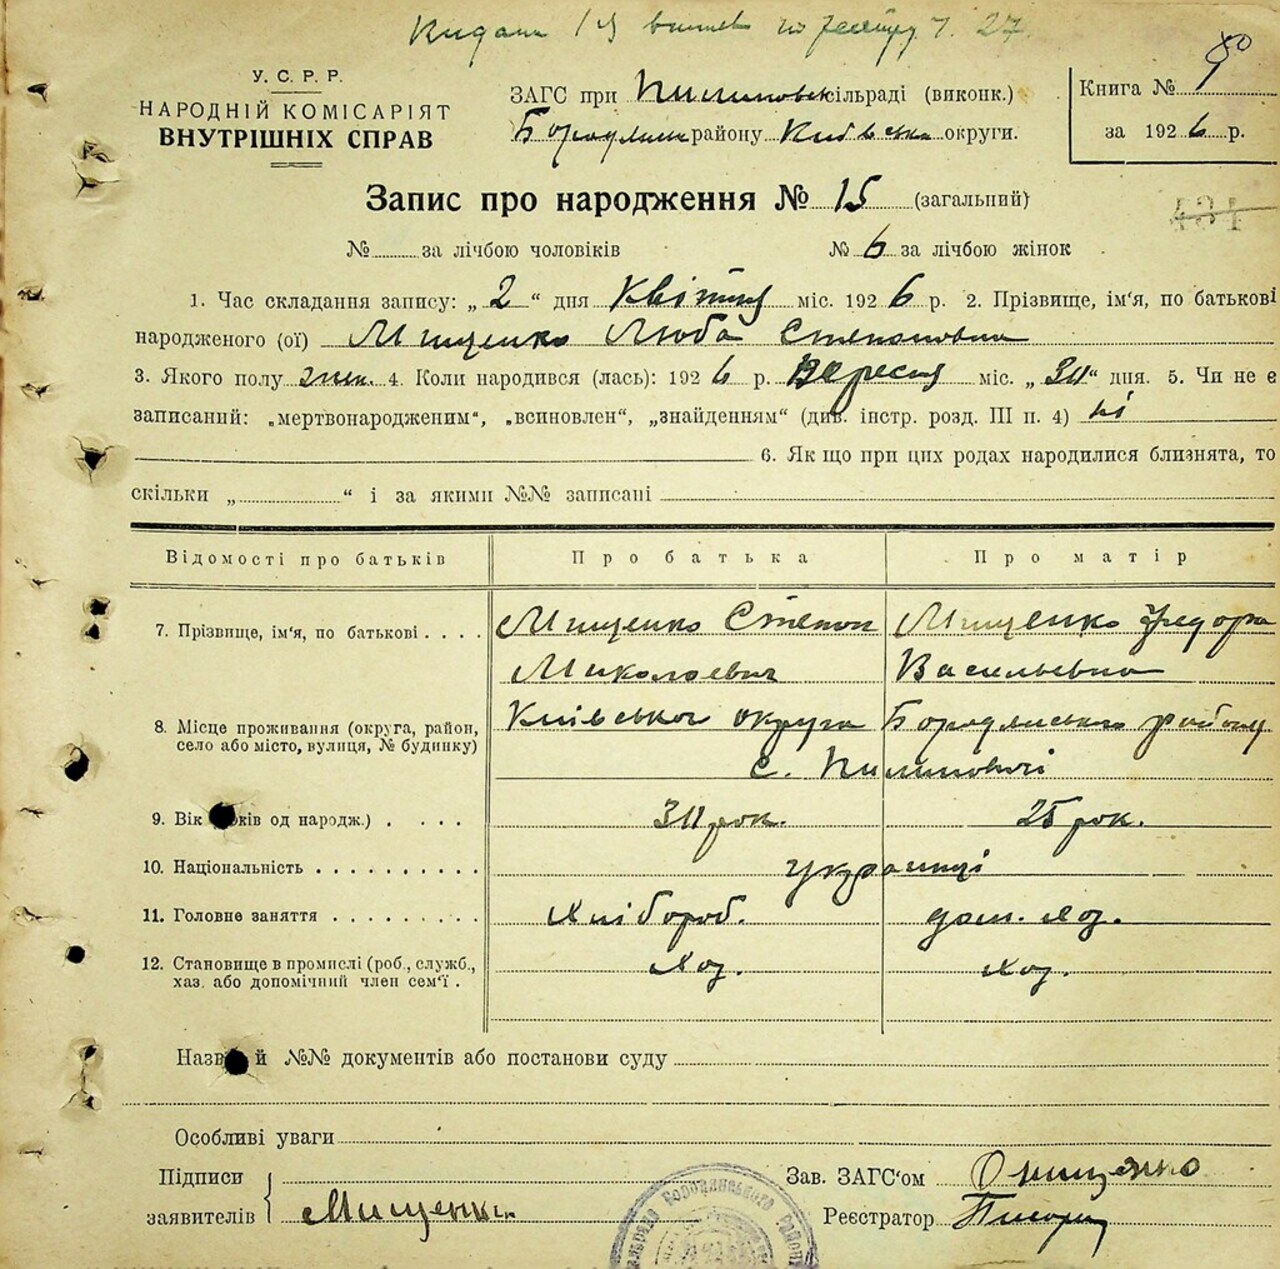 У. С. Р. Р.
НАРОДНІЙ КОМІСАРІЯТ
ВНУТРІШНІХ СПРАВ
ЗАГС при Пилиповск сільраді (виконк.)
Бородянск району Київська округи.
Книга № 9
за 1926 р.
Запис про народження № 15 (загальний)
431
№ за лічбою чоловіків № 6 за лічбою жінок
1. Час складання запису: „ 2 “ дня Квітня міс. 1926 р. 2. Прізвище, ім'я, по батькові
народженого (ої) Мищенко Люба Степановна
3. Якого полу жін. 4. Коли народився (лась): 1926 р. Вересня міс. „30“ дня. 5. Чи не є
записаний: „мертвонародженим“, „всиновлен“, „знайденням“ (див. інстр. розд. III п. 4) ні
6. Як що при цих родах народилися близнята, то
скільки „ “ і за якими №№ записані
Відомості про батьків Про батька Про матір
7. Прізвище, ім'я, по батькові . . . . Мищенко Степан Мищенко Федора
Миколаевич Васильевна
8. Місце проживання (округа, район,
село або місто, вулиця, № будинку)
Київського округа Бородянського району
с. Пилиповичі
9. Вік ків од народж.) . . . . 30 рок. 25 рок.
10. Національність . . . . . . . . . . українці
11. Головне заняття . . . . . . . . . Хлібороб. дом. хоз.
12. Становище в промислі (роб., служб.,
хаз. або допомічний член сем'ї . хоз. хоз.
Назв й №№ документів або постанови суду
Особливі уваги
Підписи
заявителів Мищенко
Зав. ЗАГС'ом Онищенко
Реєстратор
Бородянського Району